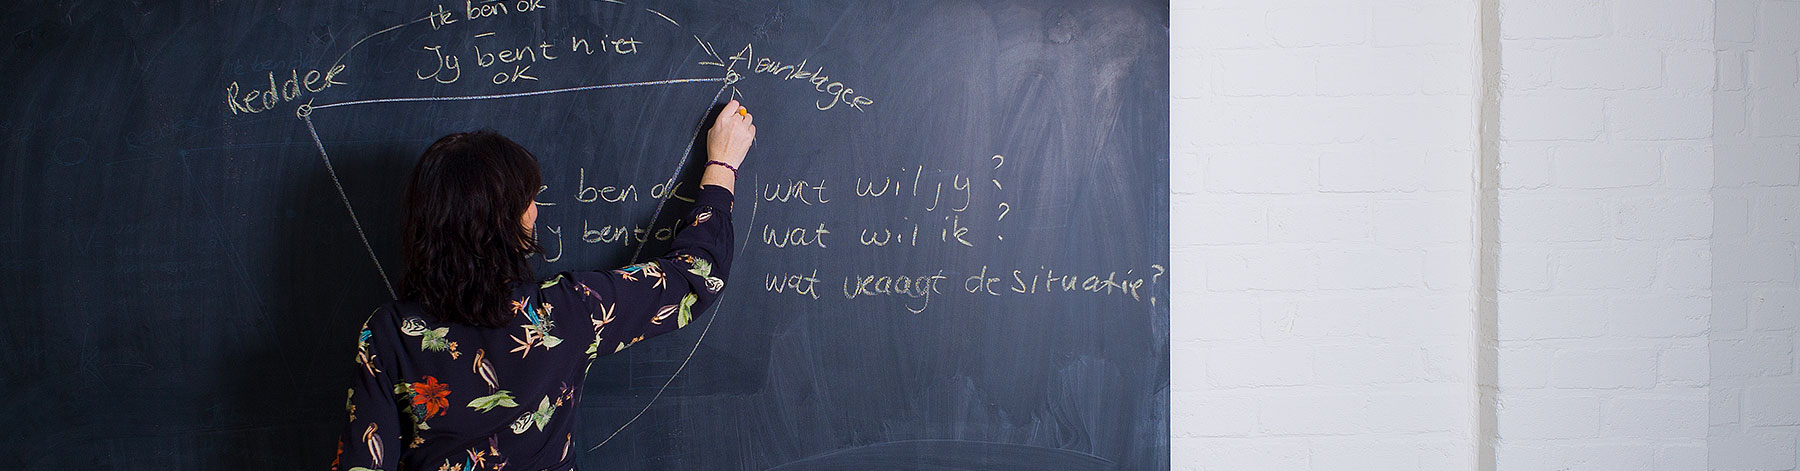 Ik ben ok
Jy bent niet
ok
Redder
Aanklager
ben ok
Jy bent ok
wat wil jy?
wat wil ik?
wat vraagt de situatie?